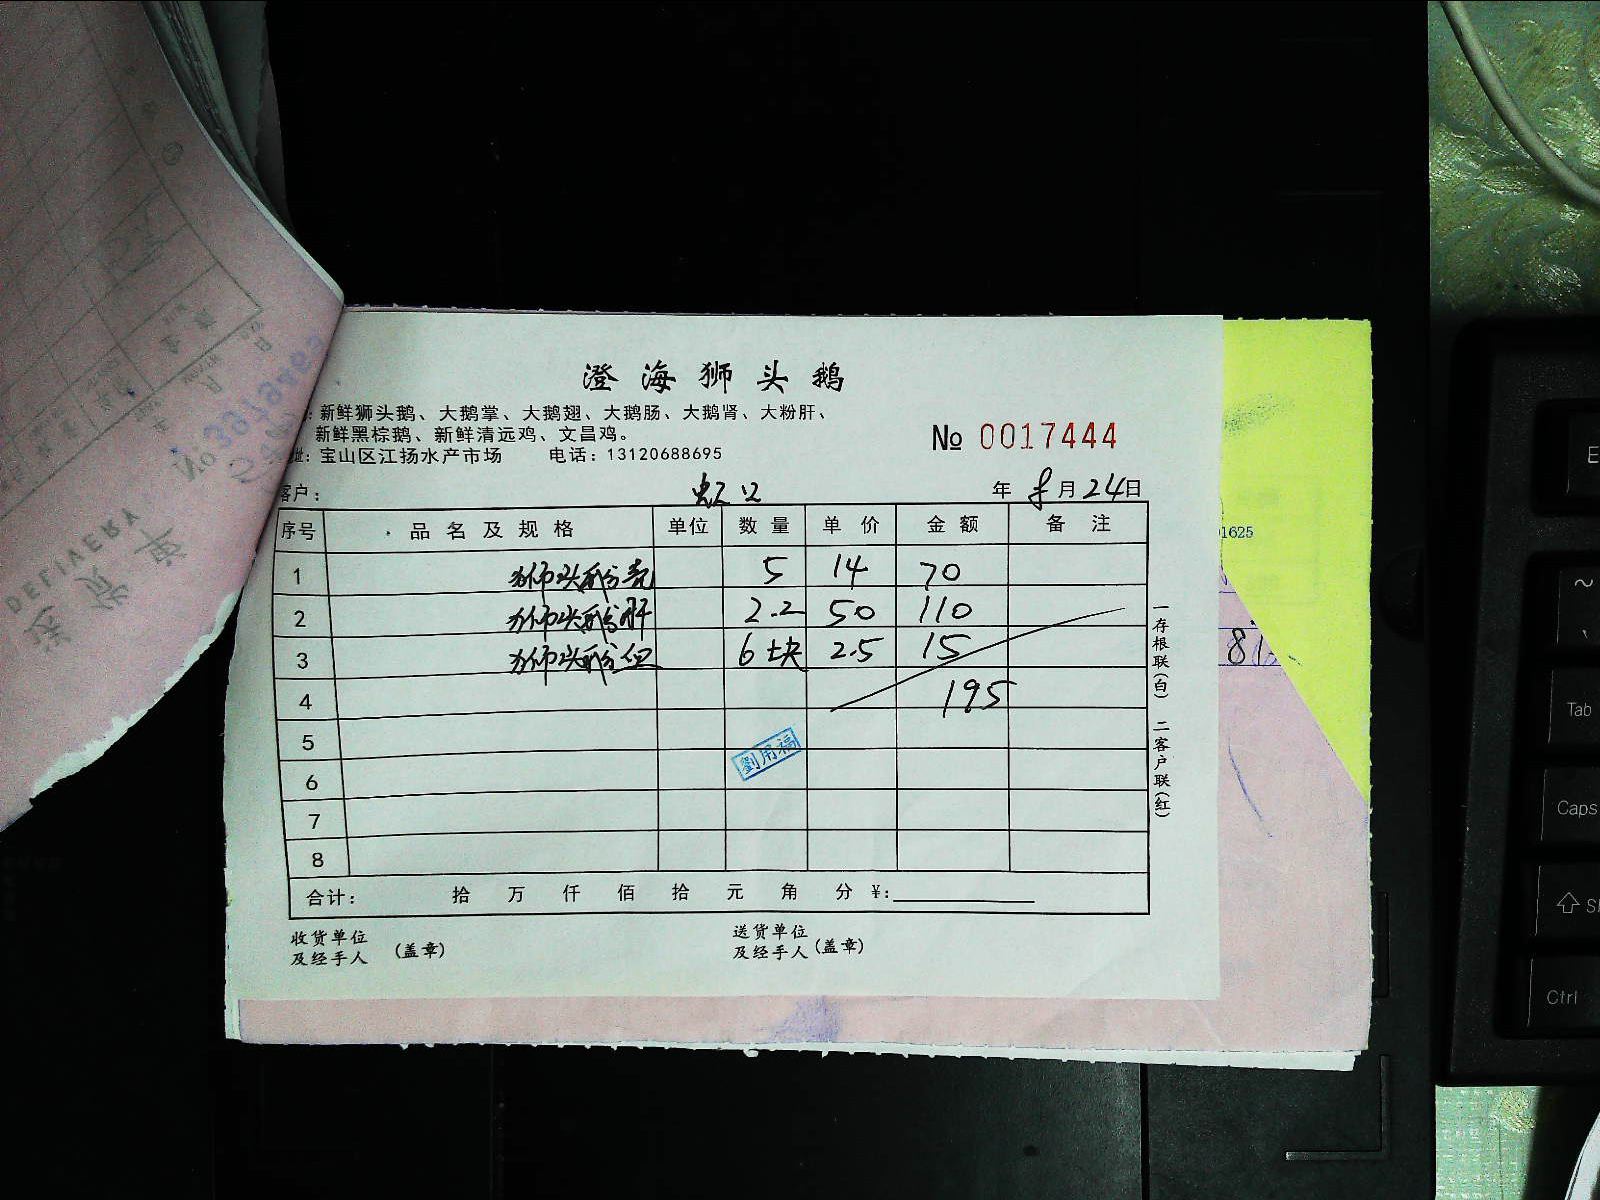 澄海狮头鹅
：新鲜狮头鹅、大鹅掌、大鹅翅、大鹅肠、大鹅肾、大粉肝、
新鲜黑棕鹅、新鲜清远鸡、文昌鸡。
址：宝山区江扬水产市场 电话：13120688695
№ 0017444
客户： 虹口 年 8月24日
序号 品名及规格 单位 数量 单价 金额 备注
1 狮头鹅 5 14 70
2 狮头鹅肝 2.2 50 110
3 狮头鹅 6块 2.5 15
4 195
5
劉用福
6
7
8
合计： 拾 万 仟 佰 拾 元 角 分 ¥：
收货单位
及经手人 (盖章)
送货单位
及经手人 (盖章)
一存根联(白) 二客户联(红)
送货单
DELIVERY
1625
81
Tab
Caps
Ctrl